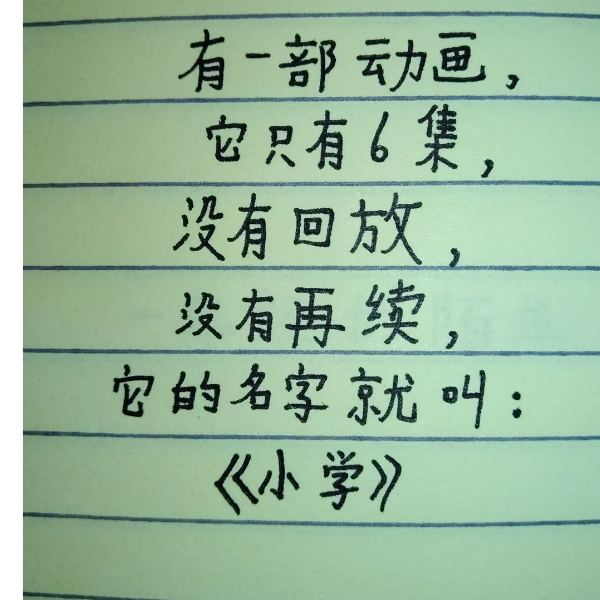 有一部动画，
它只有6集，
没有回放，
没有再续，
它的名字就叫：
《小学》